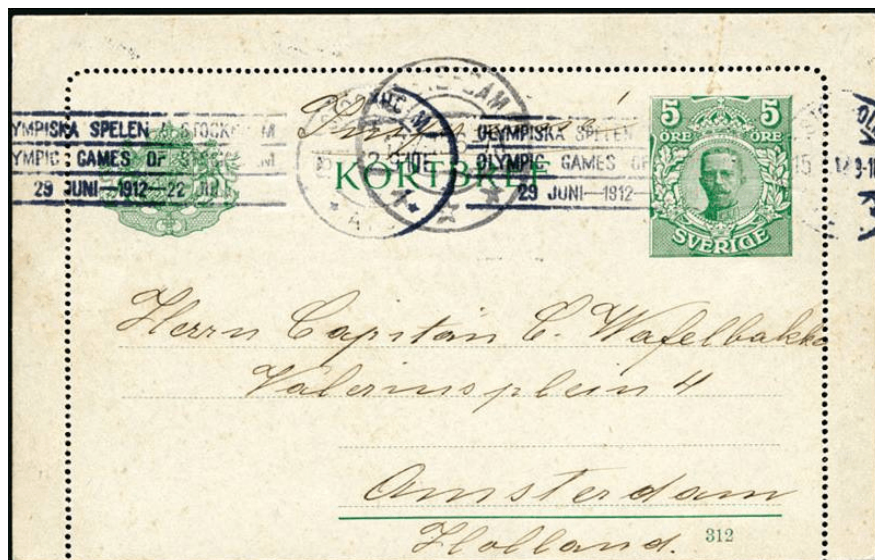 5 5
ÖRE ÖRE
YMPISKA SPELEN STOCK M
YMPIC GAMES OF S M
29 JUNI—1912—22 JULI
OLYMPISKA SPELEN
OLYMPIC GAMES OF
29 JUNI—1912—
KORTBREF
SVERIGE
Herrn Capitän C. Wafelbakke
Valeriusplein 4
Amsterdam
Holland.
312